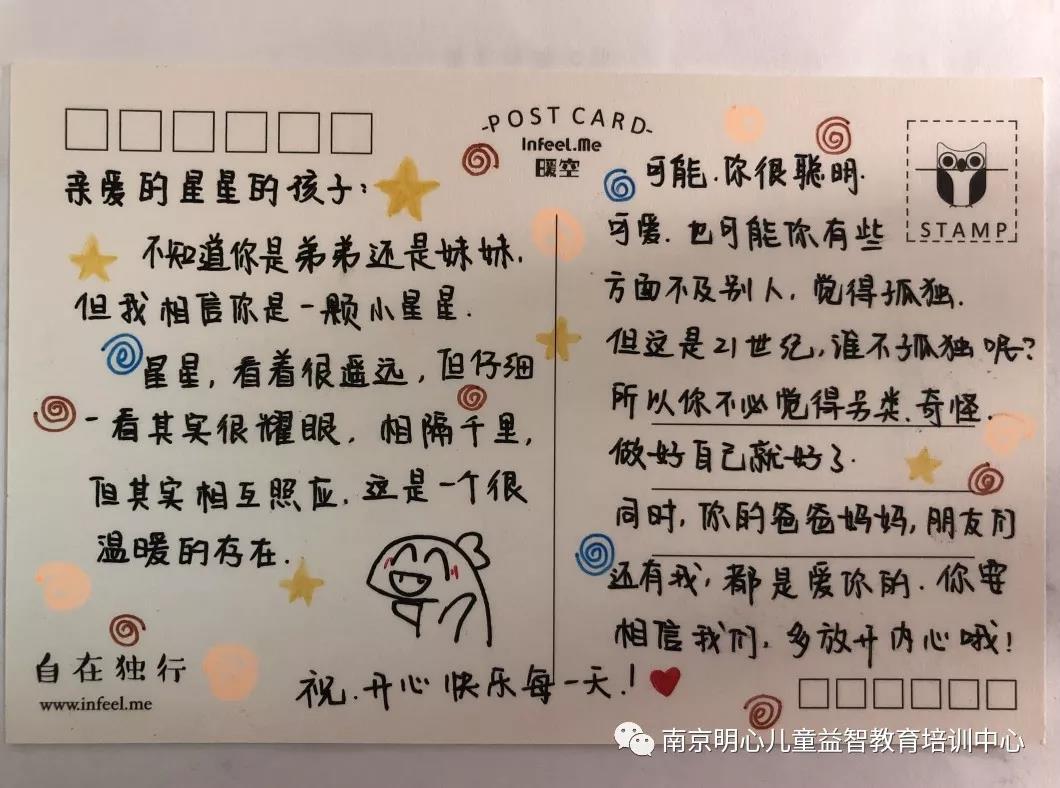 POST CARD
Infeel.Me
暖空
STAMP
亲爱的星星的孩子：
不知道你是弟弟还是妹妹，
但我相信你是一颗小星星.
星星，看着很遥远，但仔细
一看其实很耀眼，相隔千里，
但其实相互照应.这是一个很
温暖的存在.
可能.你很聪明.
可爱.也可能你有些
方面不及别人，觉得孤独.
但这是21世纪，谁不孤独呢？
所以你不必觉得另类、奇怪.
做好自己就好了.
同时，你的爸爸妈妈，朋友们
还有我，都是爱你的.你要
相信我们，多放开内心哦！
祝.开心快乐每一天！
自在独行
www.infeel.me
南京明心儿童益智教育培训中心